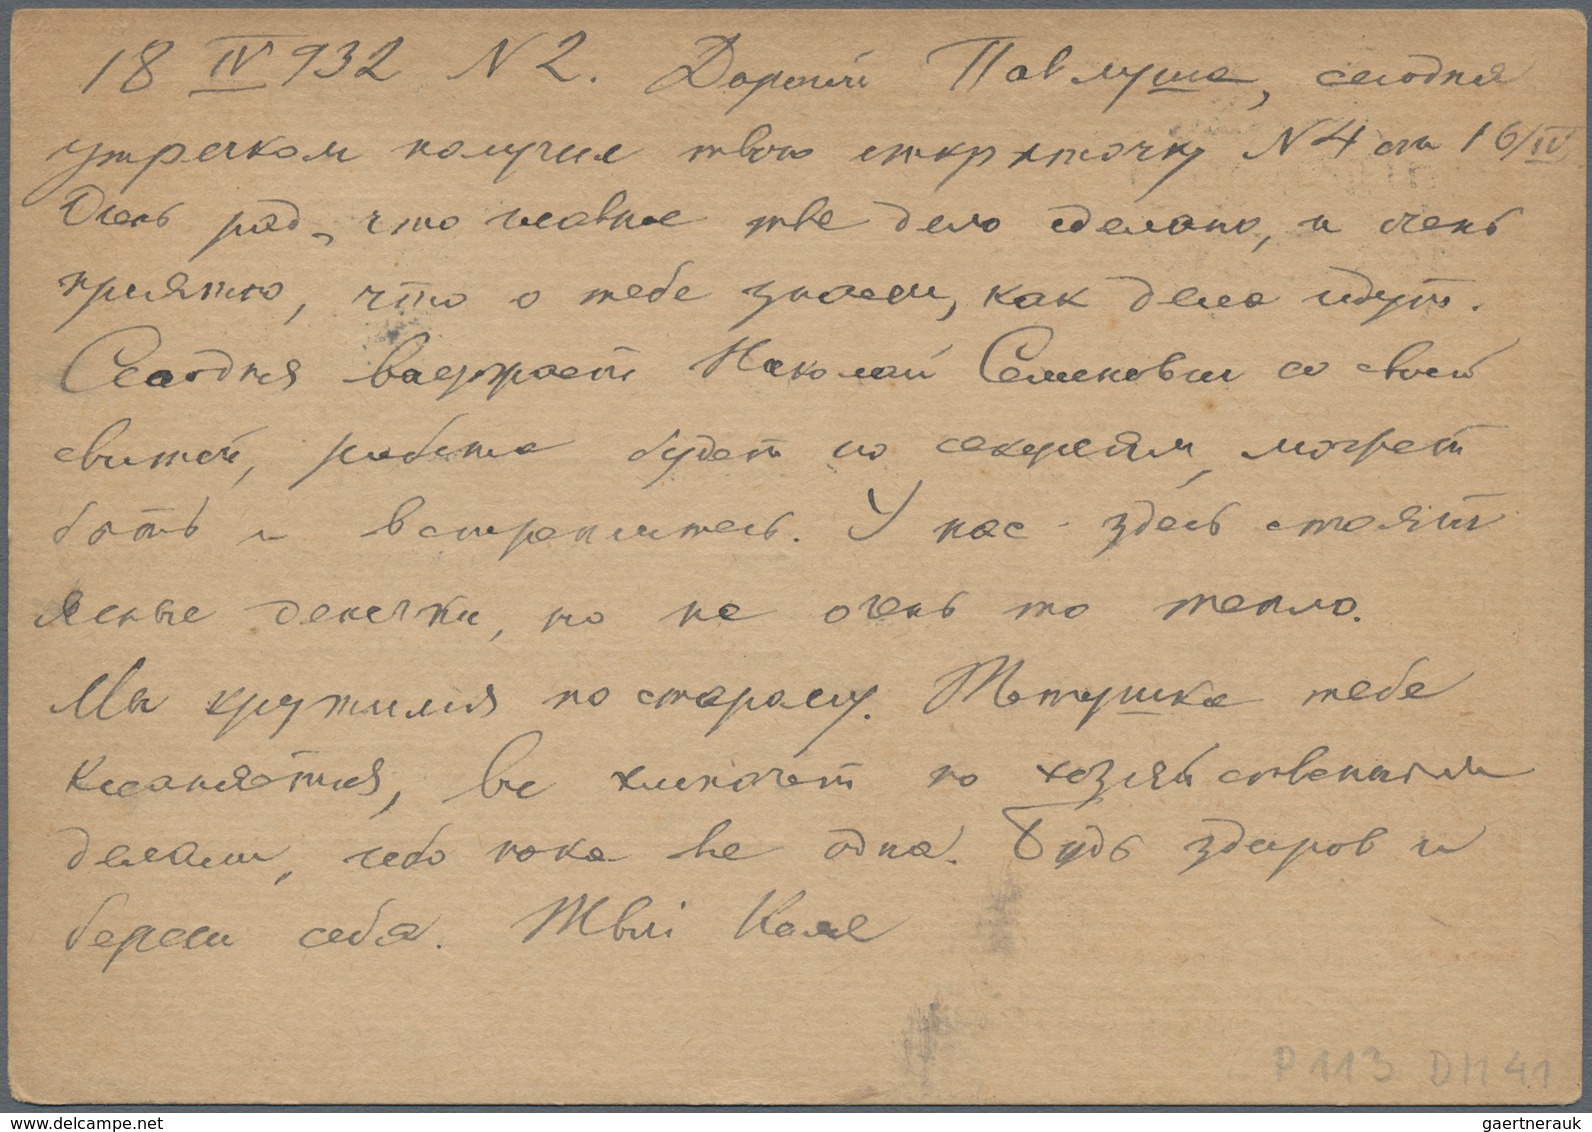 18 IV 932 N 2. Дорогой Павлуша, сегодня
утречком получил твою открыточку N 4 от 16/IV
Очень рад, что главное дело сделано, и очень
приятно, что о тебе знаем, как дела идут.
Сегодня Николай Семенович со своей
свитой, работа будет по секциям, может
быть и встретитесь. У нас здесь стоят
ясные денечки, но не очень то тепло.
Мы крутимся по старому. Тетушка тебе
кланяется, все хлопочет по хозяйственным
делам, пока не одна. Будь здоров и
береги себя. Твой Коля
P 113 DII 41
gaertnerauk